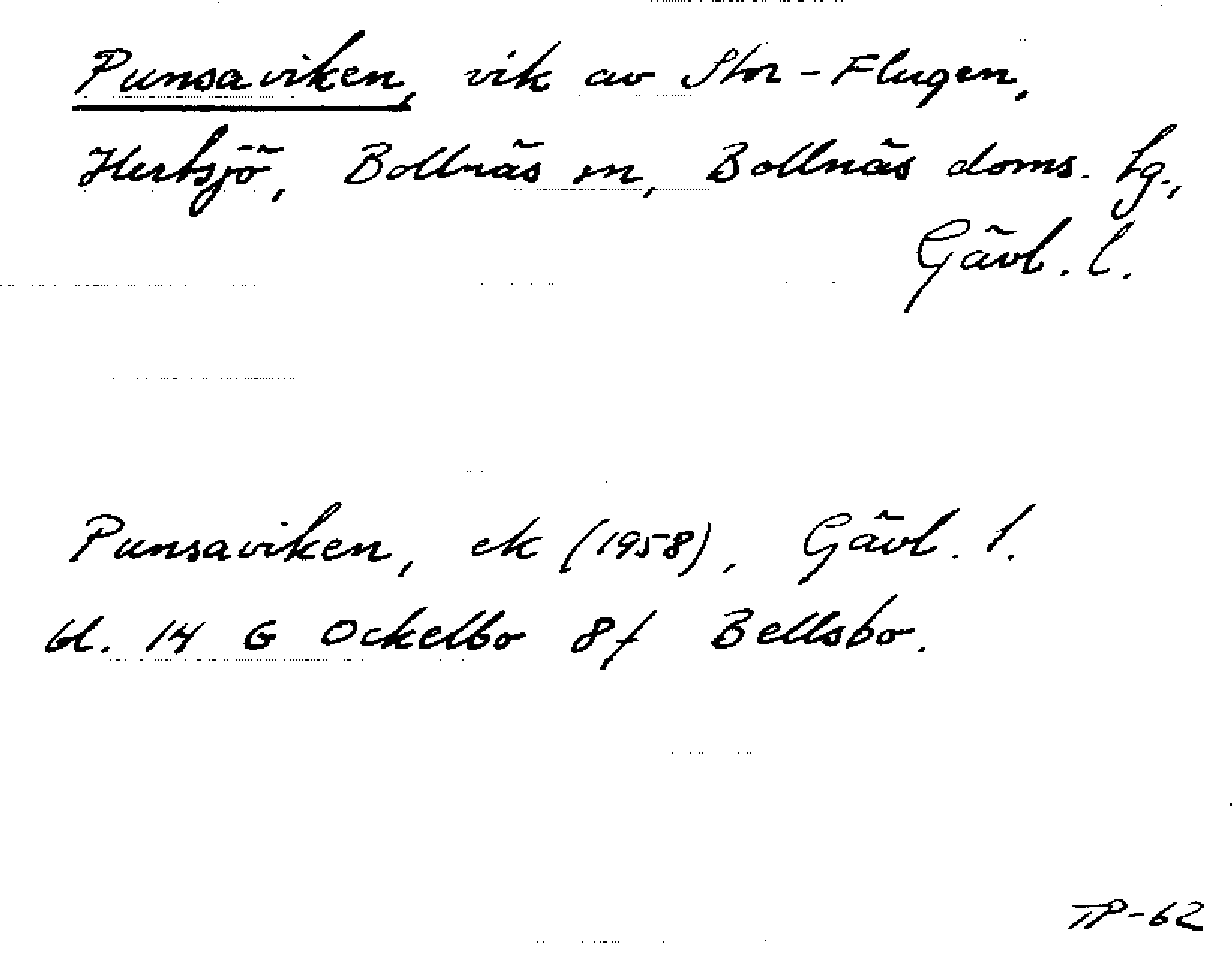 Punsaviken, vik av Stor-Flugen,
Hertsjö, Bollnäs sn, Bollnäs doms. hg.,
Gävl. l.
Punsaviken, ek (1958), Gävl. l.
bl. 14 G Ockelbo 8f Bellsbo.
TP-62